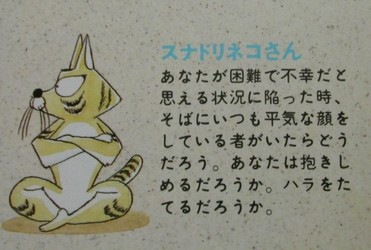 スナドリネコさん
あなたが困難で不幸だと
思える状況に陥った時、
そばにいつも平気な顔を
している者がいたらどう
だろう。あなたは抱きし
めるだろうか。ハラをた
てるだろうか。